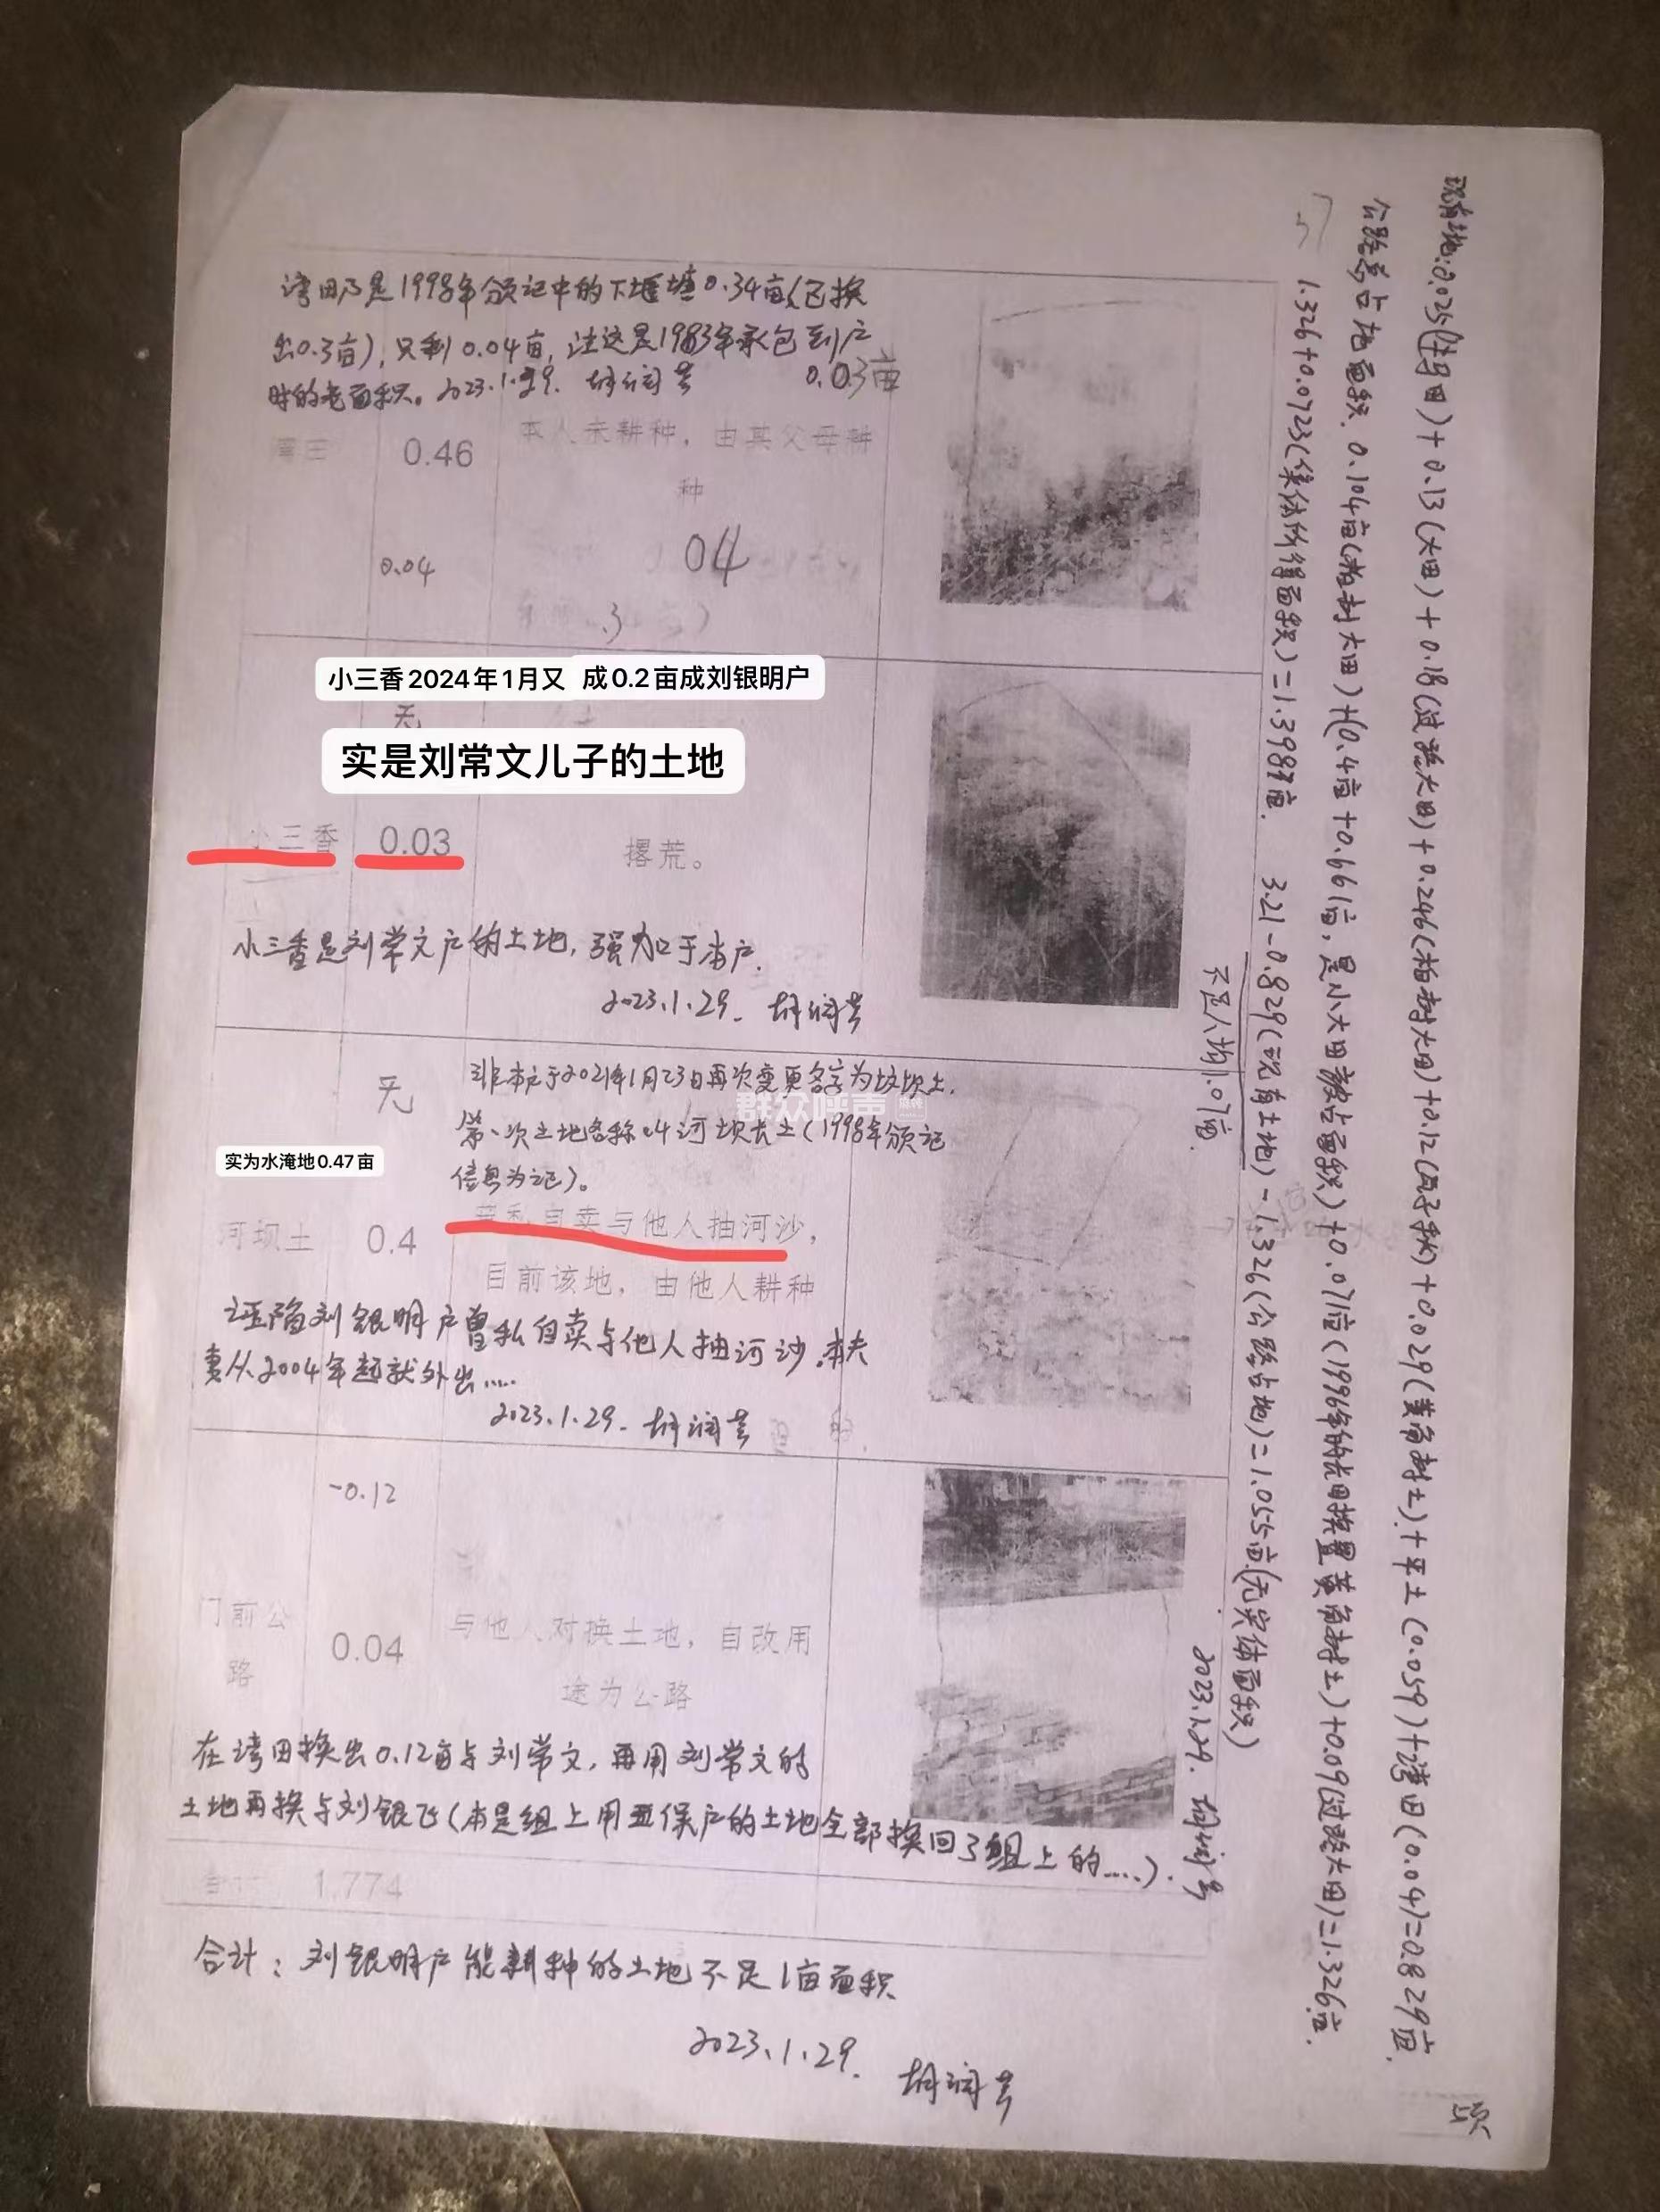 湾田乃是1998年颁证中的下堰塘0.34亩(已换
出0.3亩),只剩0.04亩,注这是1983年承包到户
时的老面积。2023.1.29.
0.03亩
湾田
0.46
本人未耕种,由其父母耕
种
0.04
04
小三香2024年1月又
成0.2亩成刘银明户
无
实是刘常文儿子的土地
小三香
0.03
撂荒。
小三香是刘常文户的土地,强加于本户.
2023.1.29.
无
非本户于2021年1月23日再次变更名字为坟坝土.
第一次土地名称叫河坝长土(1998年颁证
信息为记)。
群众呼声
实为水淹地0.47亩
河坝土
0.4
曾私自卖与他人抽河沙,
目前该地,由他人耕种
诬陷刘银明户曾私自卖与他人抽河沙.本夫
妻从2004年起就外出....
2023.1.29.
-0.12
门前公
路
0.04
与他人对换土地,自改用
途为公路
在湾田换出0.12亩与刘常文,再用刘常文的
土地再换与刘银飞(本是组上用五保户的土地全部换回了组上的....).
1.774
合计:刘银明户能耕种的土地不足1亩面积
2023.1.29.
现有地:0.025(生马田)+0.13(大田)+0.18(过路大田)+0.246(柏树大田)+0.12(瓦子秋)+0.029(黄角树土)+平土(0.059)+湾田(0.04)=0.829亩.
公路等占地面积 0.104亩(柏树大田)+(0.4亩+0.661亩,是小大田被占面积)+0.071亩(1996年的长田换置黄角树土)+0.09(过路大田)=1.326亩.
57
1.326+0.0723(集体所得面积)=1.3983亩.
3.21-0.829(现有土地)-1.326(公路占地)=1.055亩(无实体面积)
不足人均1.07亩.
2023.1.29.
5页